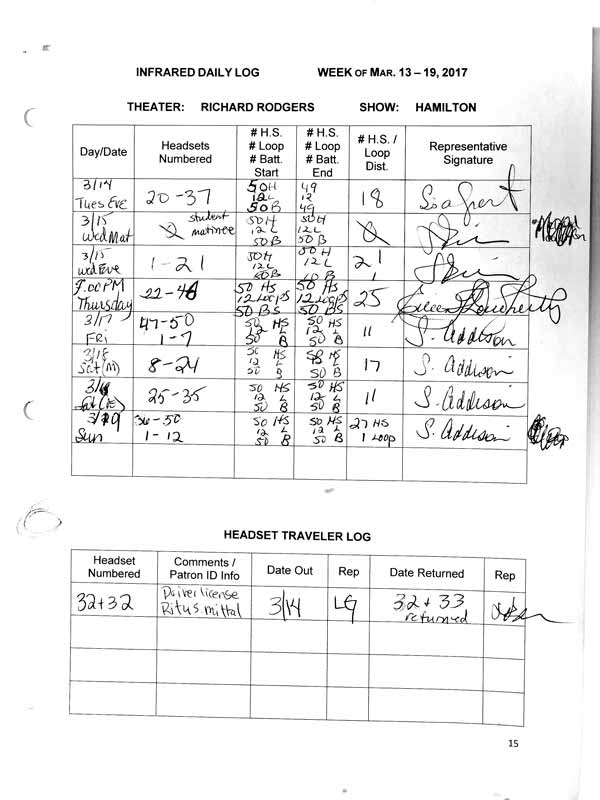 INFRARED DAILY LOG WEEK OF MAR. 13 – 19, 2017
THEATER: RICHARD RODGERS SHOW: HAMILTON
Day/Date
Headsets
Numbered
# H.S.
# Loop
# Batt.
Start
# H.S.
# Loop
# Batt.
End
# H.S. /
Loop
Dist.
Representative
Signature
3/14
Tues Eve
20-37
50H
12L
50B
49
12
49
18
3/15
Wed Mat
student
matinee
50H
12L
50B
50H
12L
50B
3/15
Wed Eve
1-21
50H
12L
50B
50H
12L
21
1
Thursday
50 HS
12 Loops
50 BS
50 HS
12 Loops
50 BS
25
Eileen
3/17
FRI
47-50
1-7
50 HS
12 L
50 B
50 HS
12 L
50 B
11
S. Addison
3/18
Sat (M)
8-24
50 HS
12 L
50 B
HS
12 L
50 B
17
S. Addison
25-35
50 HS
12 L
50 B
50 HS
12 L
50 B
11
S. Addison
Sun
36-50
1-12
50 HS
12 L
50 B
50 HS
12 L
50 B
27 HS
1 Loop
S. Addison
HEADSET TRAVELER LOG
Headset
Numbered
Comments /
Patron ID Info
Date Out
Rep
Date Returned
Rep
32+32
Driver license
Ritus mittal
3/14
LG
32+33
returned
15